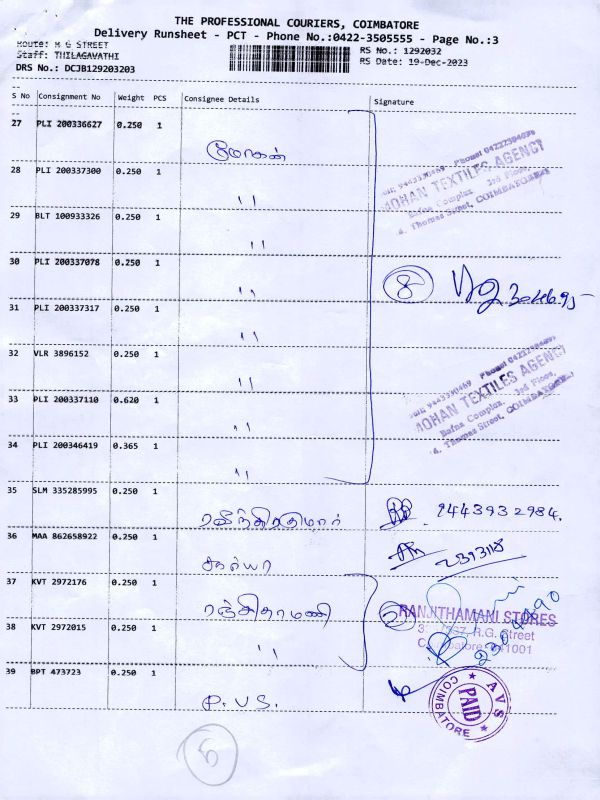 THE PROFESSIONAL COURIERS, COIMBATORE
Delivery Runsheet - PCT - Phone No.:0422-3505555 - Page No.:3
Route: M G STREET
Staff: THILAGAVATHI
DRS No.: DCJB129203203
RS No.: 1292032
RS Date: 19-Dec-2023
S No Consignment No Weight PCS Consignee Details Signature
27 PLI 200336627 0.250 1 மோகன்
28 PLI 200337300 0.250 1 ''
MOHAN TEXTILES AGENCY
Rafna Complex 3rd Floor,
Thomas Street, COIMBATORE
29 BLT 100933326 0.250 1 ''
30 PLI 200337078 0.250 1 ''
8
31 PLI 200337317 0.250 1 ''
32 VLR 3896152 0.250 1 ''
33 PLI 200337110 0.620 1 ''
MOHAN TEXTILES AGENCY
Rafna Complex, 3rd Floor,
Thomas Street, COIMBATORE
34 PLI 200346419 0.365 1 ''
35 SLM 335285995 0.250 1 ரவீந்திரகுமார் 9443932984.
36 MAA 862658922 0.250 1 சூர்யா
37 KVT 2972176 0.250 1 ரஞ்சிதாமணி
2
RANJITHAMANI STORES
R.G. Street
38 KVT 2972015 0.250 1 ''
39 BPT 473723 0.250 1 P.VS.
AVS
PAID
COIMBATORE
5